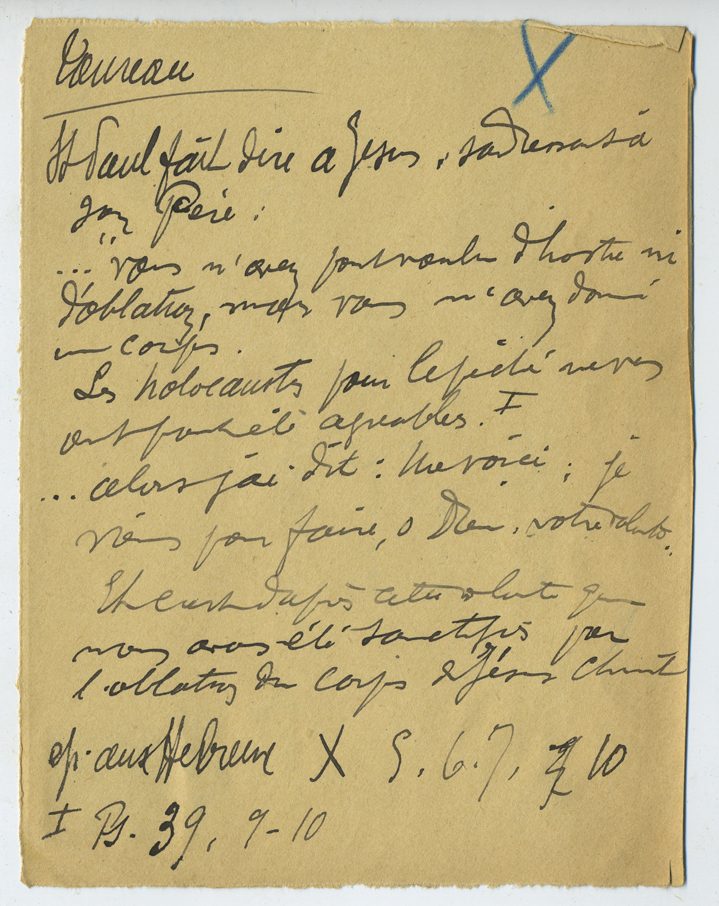 St Paul fait dire a Jesus, s'adressant à
son Père :
... "vous n'avez point voulu d'hostie ni
d'oblation, mais vous m'avez donné
un corps.
Les holocaustes pour le péché ne vous
ont point été agréables. I
... alors j'ai dit : Me voici ; je
viens pour faire, o Dieu, votre volonté.
Et c'est d'après cette volonté que
nous avons été sanctifiés par
l'oblation du corps de Jésus Christ
ep. aux Hebreux X 5. 6. 7. 10
I Ps. 39, 9-10